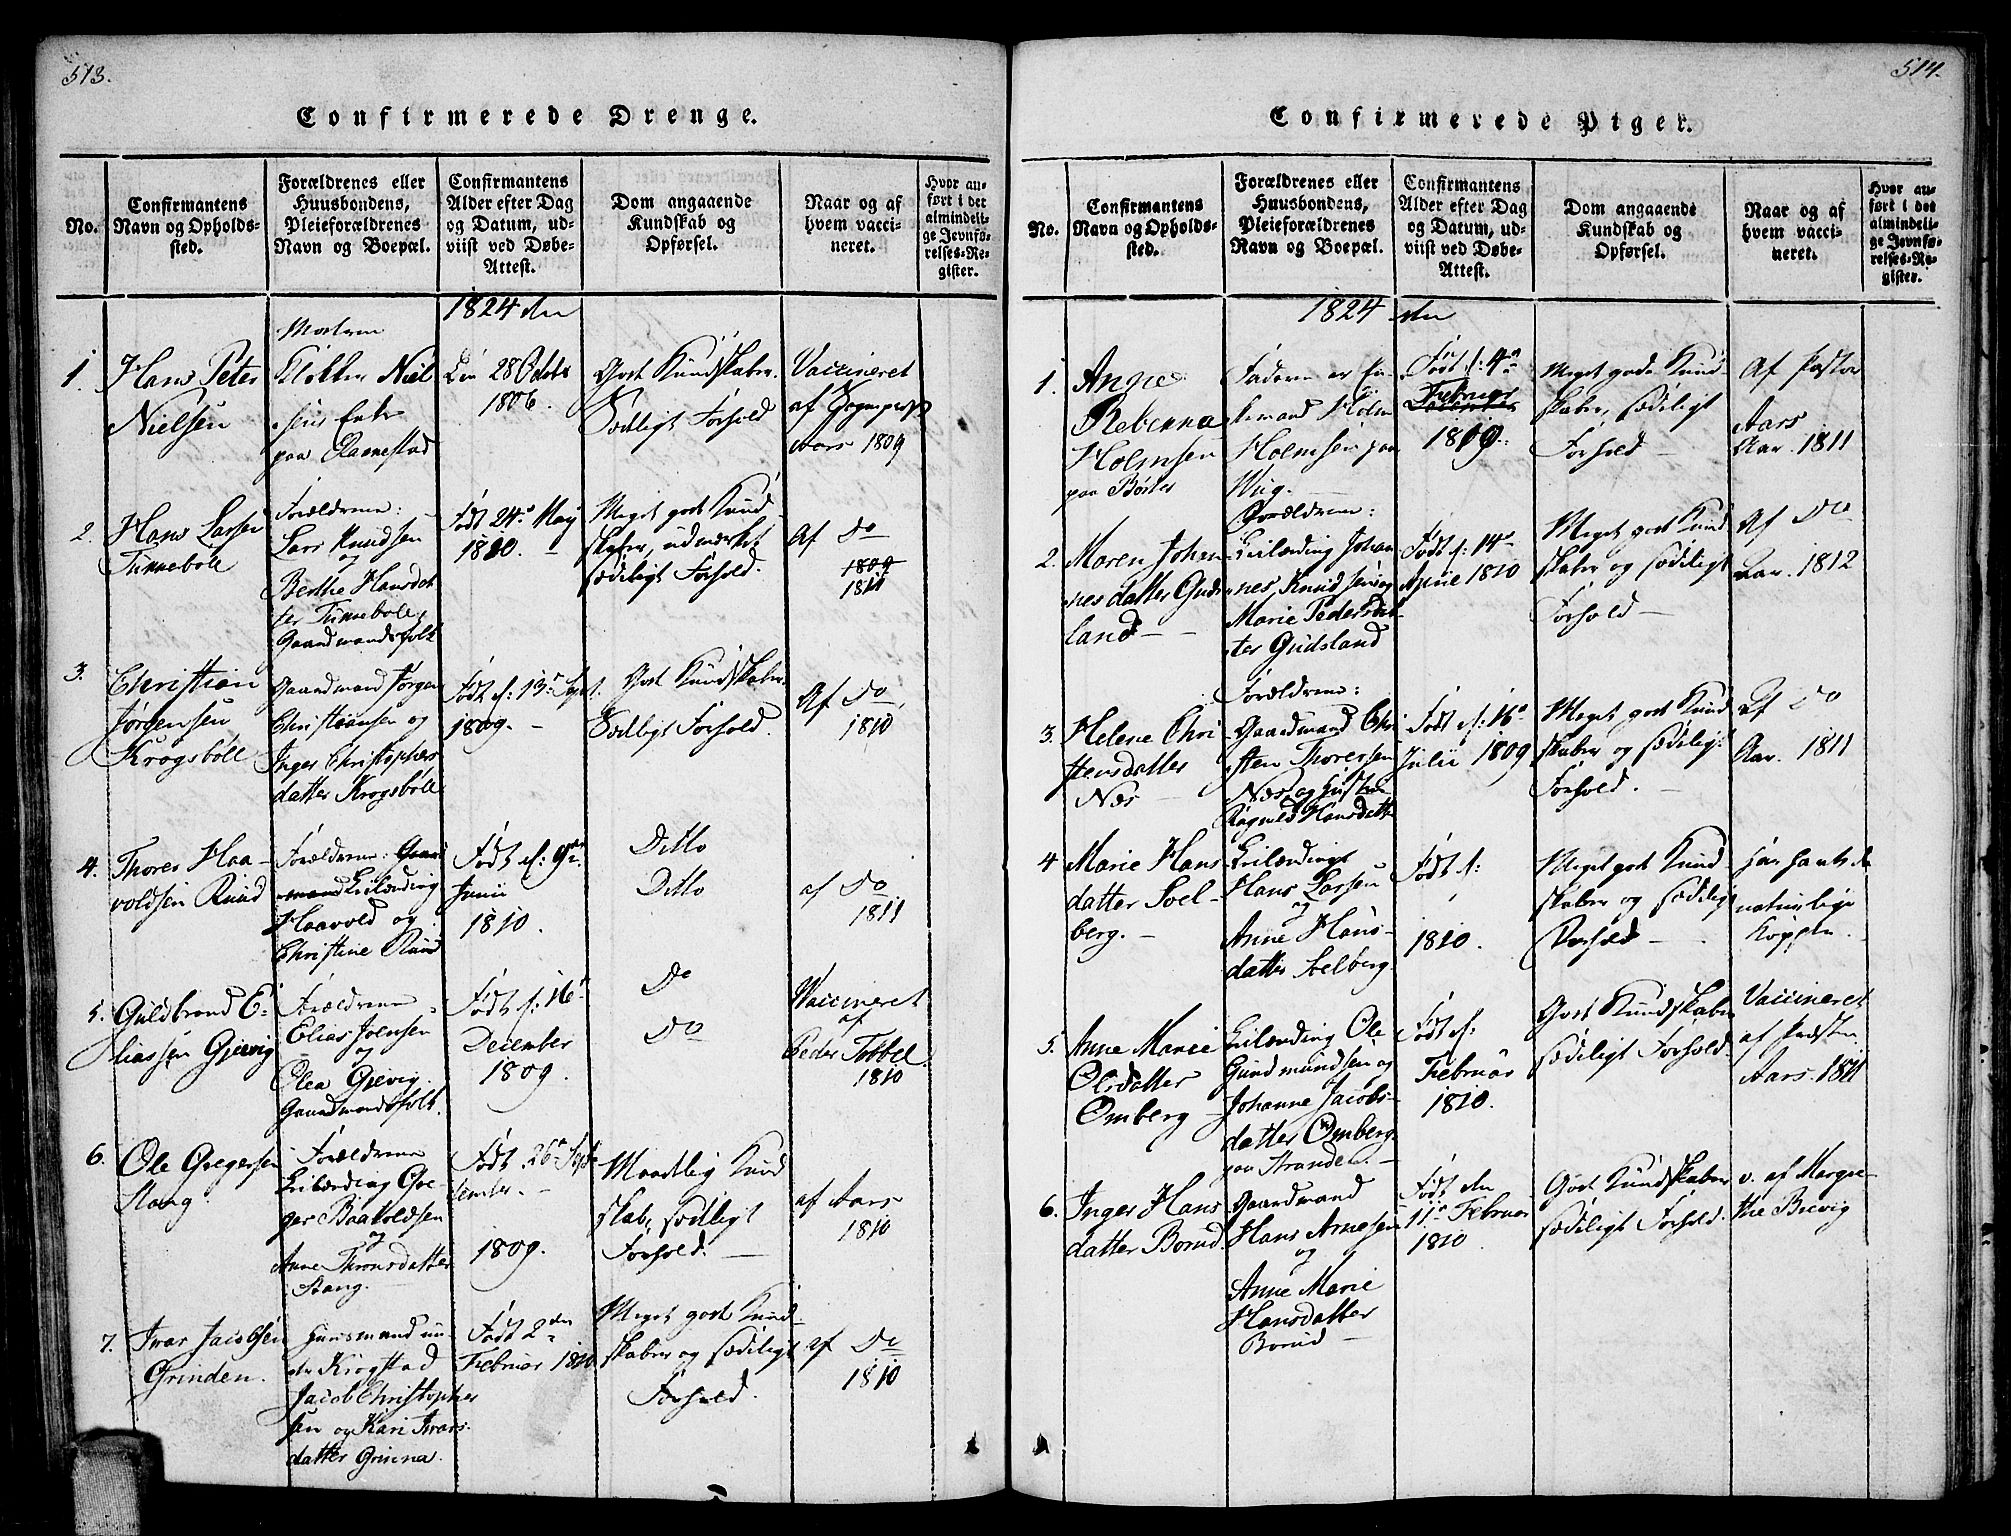 513.
Confirmerede Drenge.
No.
Confirmantens
Navn og Opholds-
sted.
Forældrenes eller
Huusbondens,
Pleieforældrenes
Navn og Boepæl.
Confirmantens
Alder efter Dag
og Datum, ud-
viist ved Døbe-
Attest.
Dom angaaende
Kundskab og
Opførsel.
Naar og af
hvem vacci-
neret.
Hvor an-
ført i det
almindeli-
ge Jevnfø-
relses-Re-
gister.
1824 den
1.
Hans Peter
Nielsen
Moderen
Klokker Niel
sens Enke
paa
Den 28 Octobr
1806.
Godt Kundskaber.
Sædligt Forhold
Vaccineret
af
Aars 1809
2.
Hans Larsen
Tunnebøle
Forældrene:
Lars Knudsen
og
Berthe Hansdat
ter Tunnebøle,
Gaardmandsfolk
Født 24de May
1810. -
Meget god Kund-
skaber, udmærket
sædeligt Forhold.
Af Do
1809
1811
3.
Christian
Jørgensen
Krogsbøll
Gaardmand Jørgen
Christiansen og
Inger Christophers
datter Krogsbøll
Født d: 13de Sept.
1809. -
Godt Kundskaber.
Sædligt Forhold.
Af Do
1810
4.
Thorer Haa-
voldsen Ruud
Forældrene: Gaard
mand Leilænding
Haavold og
Christine Ruud
Født d: 9de
Junii
1810.
Ditto
Ditto
af Do
1811
5.
Guldbrand E-
liassen Gjevig
Forældrene
Elias Joensen
og
Olea Gjevig.
Gaardmandsfolk.
Født d: 16de
December
1809.
Do
Do
Vaccineret
af
Peder Tobbel
1810
6.
Ole Gregersen
Stang
Forældrene
Leilænding Gre-
ger Baardsen
og
Anne Thronsdatter
Stang.
Født 26de Sep-
tember. -
1809.
Maadelig Kund
skab, sædligt
Forhold. -
af Aars
1810
7.
Ivar Jacobsen
Grinden.
Huusmand un-
der Krogstad
Jacob Christopher
sen og Kari Ivars
datter Grinna.
Født 2den
Februar 1810
Meget godt Kund-
skaber og sædeligt
Forhold.
af Do
1810
514.
Confirmerede Piger.
No.
Confirmantens
Navn og Opholds-
sted.
Forældrenes eller
Huusbondens,
Pleieforældrenes
Navn og Boepæl.
Confirmantens
Alder efter Dag
og Datum, ud-
viist ved Døbe-
Attest.
Dom angaaende
Kundskab og
Opførsel.
Naar og af
hvem vacci-
neret.
Hvor an-
ført i det
almindeli-
ge Jevnfø-
relses-Re-
gister.
1824 den
1.
Anne
Rebecca
Holmsen
paa Børter
Faderen er En-
kemand Holm
Holmsen paa
Wiig.
Født d: 4de
Februar
1809.
Meget gode Kund-
skaber, sædeligt
Forhold -
Af Pastor
Aars
Aar. 1811
2.
Maren Johan
nesdatter Guds
land -
Forældrene:
Leilænding Johan
nes Knudsen og
Marie Pedersdat
ter Gudsland
Født d: 14de
April 1810
Meget godt Kund
skaber og sædeligt
Forhold -
Af Do
Aar. 1812
3.
Helene Chri
stensdatter
Næs -
Forældrene:
Gaardmand Chri
sten Thoressen
Næs og Hustru
Ragnild Hansdatter
Født d: 16de
Julii 1809
Meget godt Kund
skaber og sædeligt
Forhold. -
Af Do
Aar. 1811
4
Marie Hans
datter Soel-
berg. -
Leilænding
Hans Larsen
og
Anne Hans-
datter Soelberg
Født d:
1810.
Meget godt Kund
skaber og sædeligt
Forhold -
har havt de
naturlige
Kopper.
5.
Anne Marie
Olsdatter
Omberg -
Leilænding Ole
Gundmundsen og
Johanne Jacobs-
datter Omberg
paa Stranden. -
Født d:
Februar
1810.
Godt Kundskaber
sædeligt Forhold.
Vaccineret
af Pastor
Aars. 1811
6.
Inger Hans
datter Borud.
Gaardmand
Hans Arnesen
og
Anne Marie
Hansdatter
Borud -
Født den
11te Februar
1810
Godt Kundskaber
sædeligt Forhold.
v. af Margre-
the Brevig